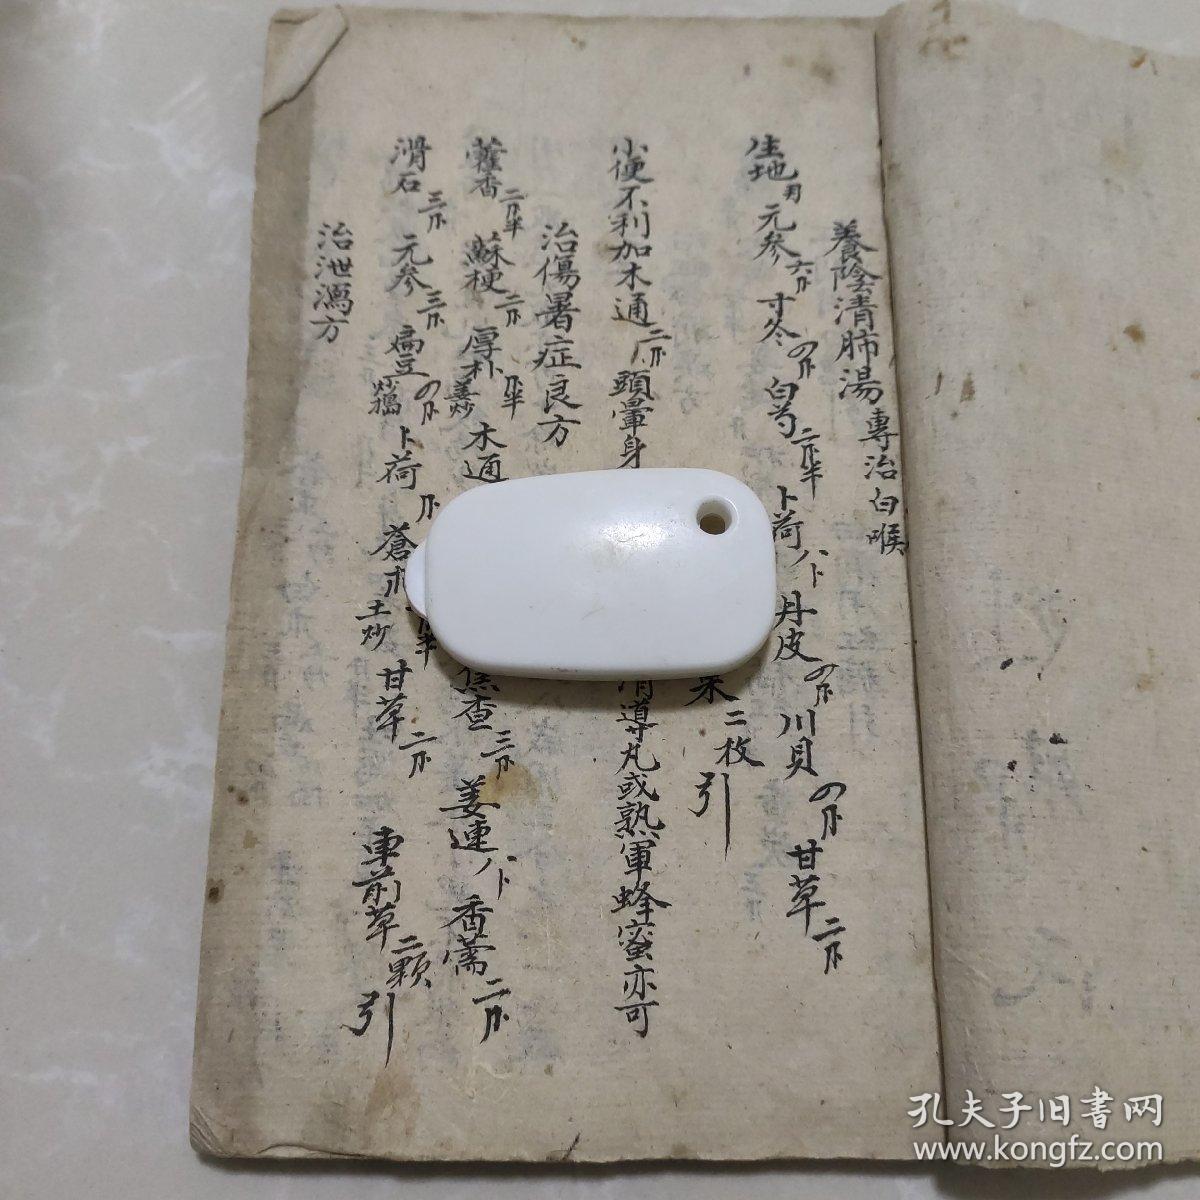 養陰清肺湯 專治白喉
生地 元參六 寸冬 白芍二半 卜荷八卜 丹皮 川貝 甘草二
二枚 引
小便不利加木通二 頭暈身 導丸或熟軍蜂蜜亦可
治傷暑症良方
藿香二半 蘇梗二 厚朴半 姜炒 木通 焦查三 姜連八卜 香薷二
滑石三 元參三 扁豆 炒 卜荷 蒼朮 土炒 半 甘草二 車前草二顆 引
治泄瀉方
孔夫子旧書网
www.kongfz.com